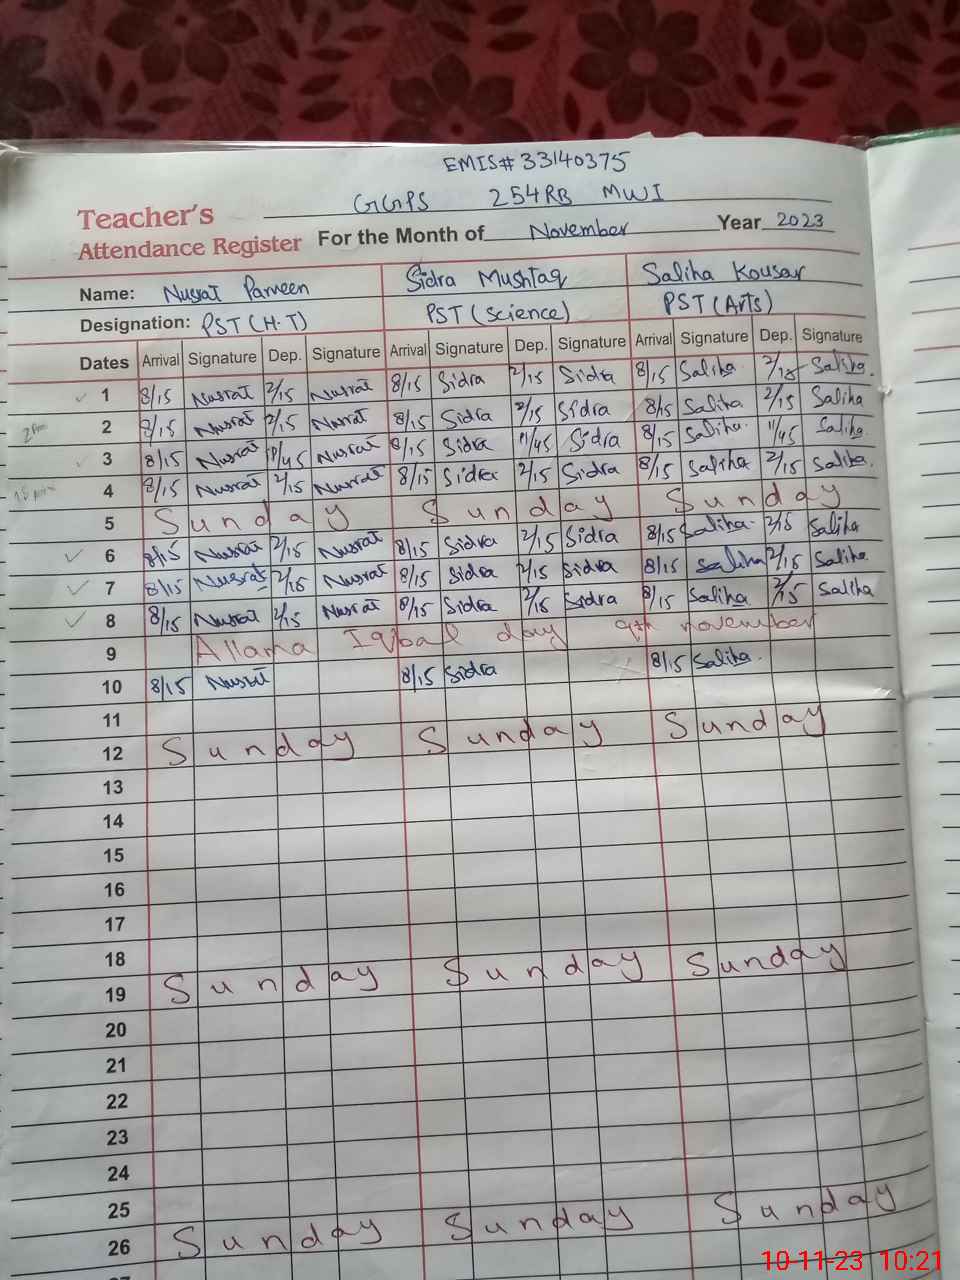 EMIS# 33140375
GGPS 254RB MWI
Teacher's
Attendance Register For the Month of November Year 2023
Name: Nusrat Parveen Sidra Mushtaq Saliha Kousar
Designation: PST (H.T) PST (Science) PST (Arts)
Dates Arrival Signature Dep. Signature Arrival Signature Dep. Signature Arrival Signature Dep. Signature
1 8/15 Nusrat 2/15 Nusrat 8/15 Sidra 2/15 Sidra 8/15 Saliha 2/15 Saliha.
2 8/15 Nusrat 2/15 Nusrat 8/15 Sidra 2/15 Sidra 8/15 Saliha 2/15 Saliha
3 8/15 Nusrat 11/45 Nusrat 8/15 Sidra 11/45 Sidra 8/15 Saliha. 11/45 Saliha.
4 8/15 Nusrat 2/15 Nusrat 8/15 Sidra 2/15 Sidra 8/15 Saliha 2/15 Saliha.
5 Sunday Sunday Sunday
6 8/15 Nusrat 2/15 Nusrat 8/15 Sidra 2/15 Sidra 8/15 Saliha. 2/15 Saliha
7 8/15 Nusrat 2/15 Nusrat 8/15 Sidra 2/15 Sidra 8/15 Saliha 2/15 Saliha
8 8/15 Nusrat 2/15 Nusrat 8/15 Sidra 2/15 Sidra 8/15 Saliha 2/15 Saliha
9 Allama Iqbal day 9th november
10 8/15 Nusrat 8/15 Sidra 8/15 Saliha.
11
12 Sunday Sunday Sunday
13
14
15
16
17
18
19 Sunday Sunday Sunday
20
21
22
23
24
25
26 Sunday Sunday Sunday
10-11-23 10:21